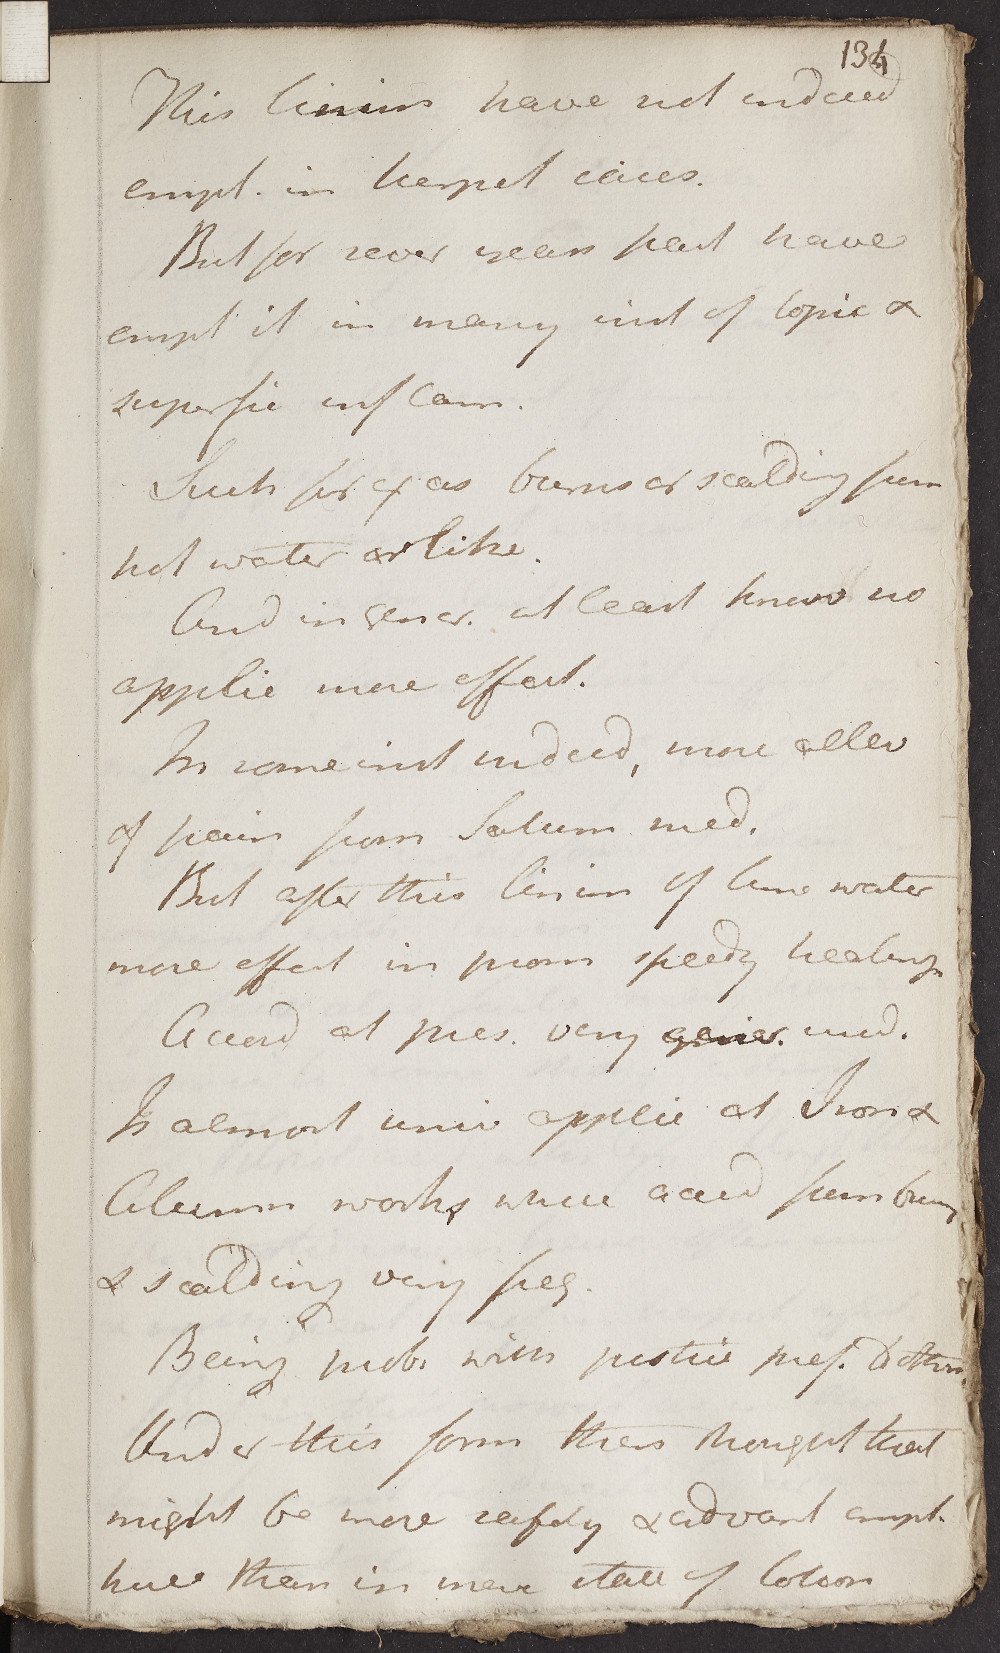 134
This linim have not indeed
empl. in herpet cases.
But for sever years past have
empl it in many inst of topic &
superfic inflam.
Such for ex as burns or scalding from
hot water or like.
And in gener. at least know no
applic more effect.
In some inst indeed, more allev
of pain from Saturn med.
But after this linim of lime water
more effect in prom speedy healing
Accord at pres. very gener. med.
Is almost univ applic at Iron &
Alumn works where accid from burng
& scalding very freq.
Being prob. with justice pref. to others.
Under this form then thought that
might be more safely & advant empl.
here than in mere state of lotion